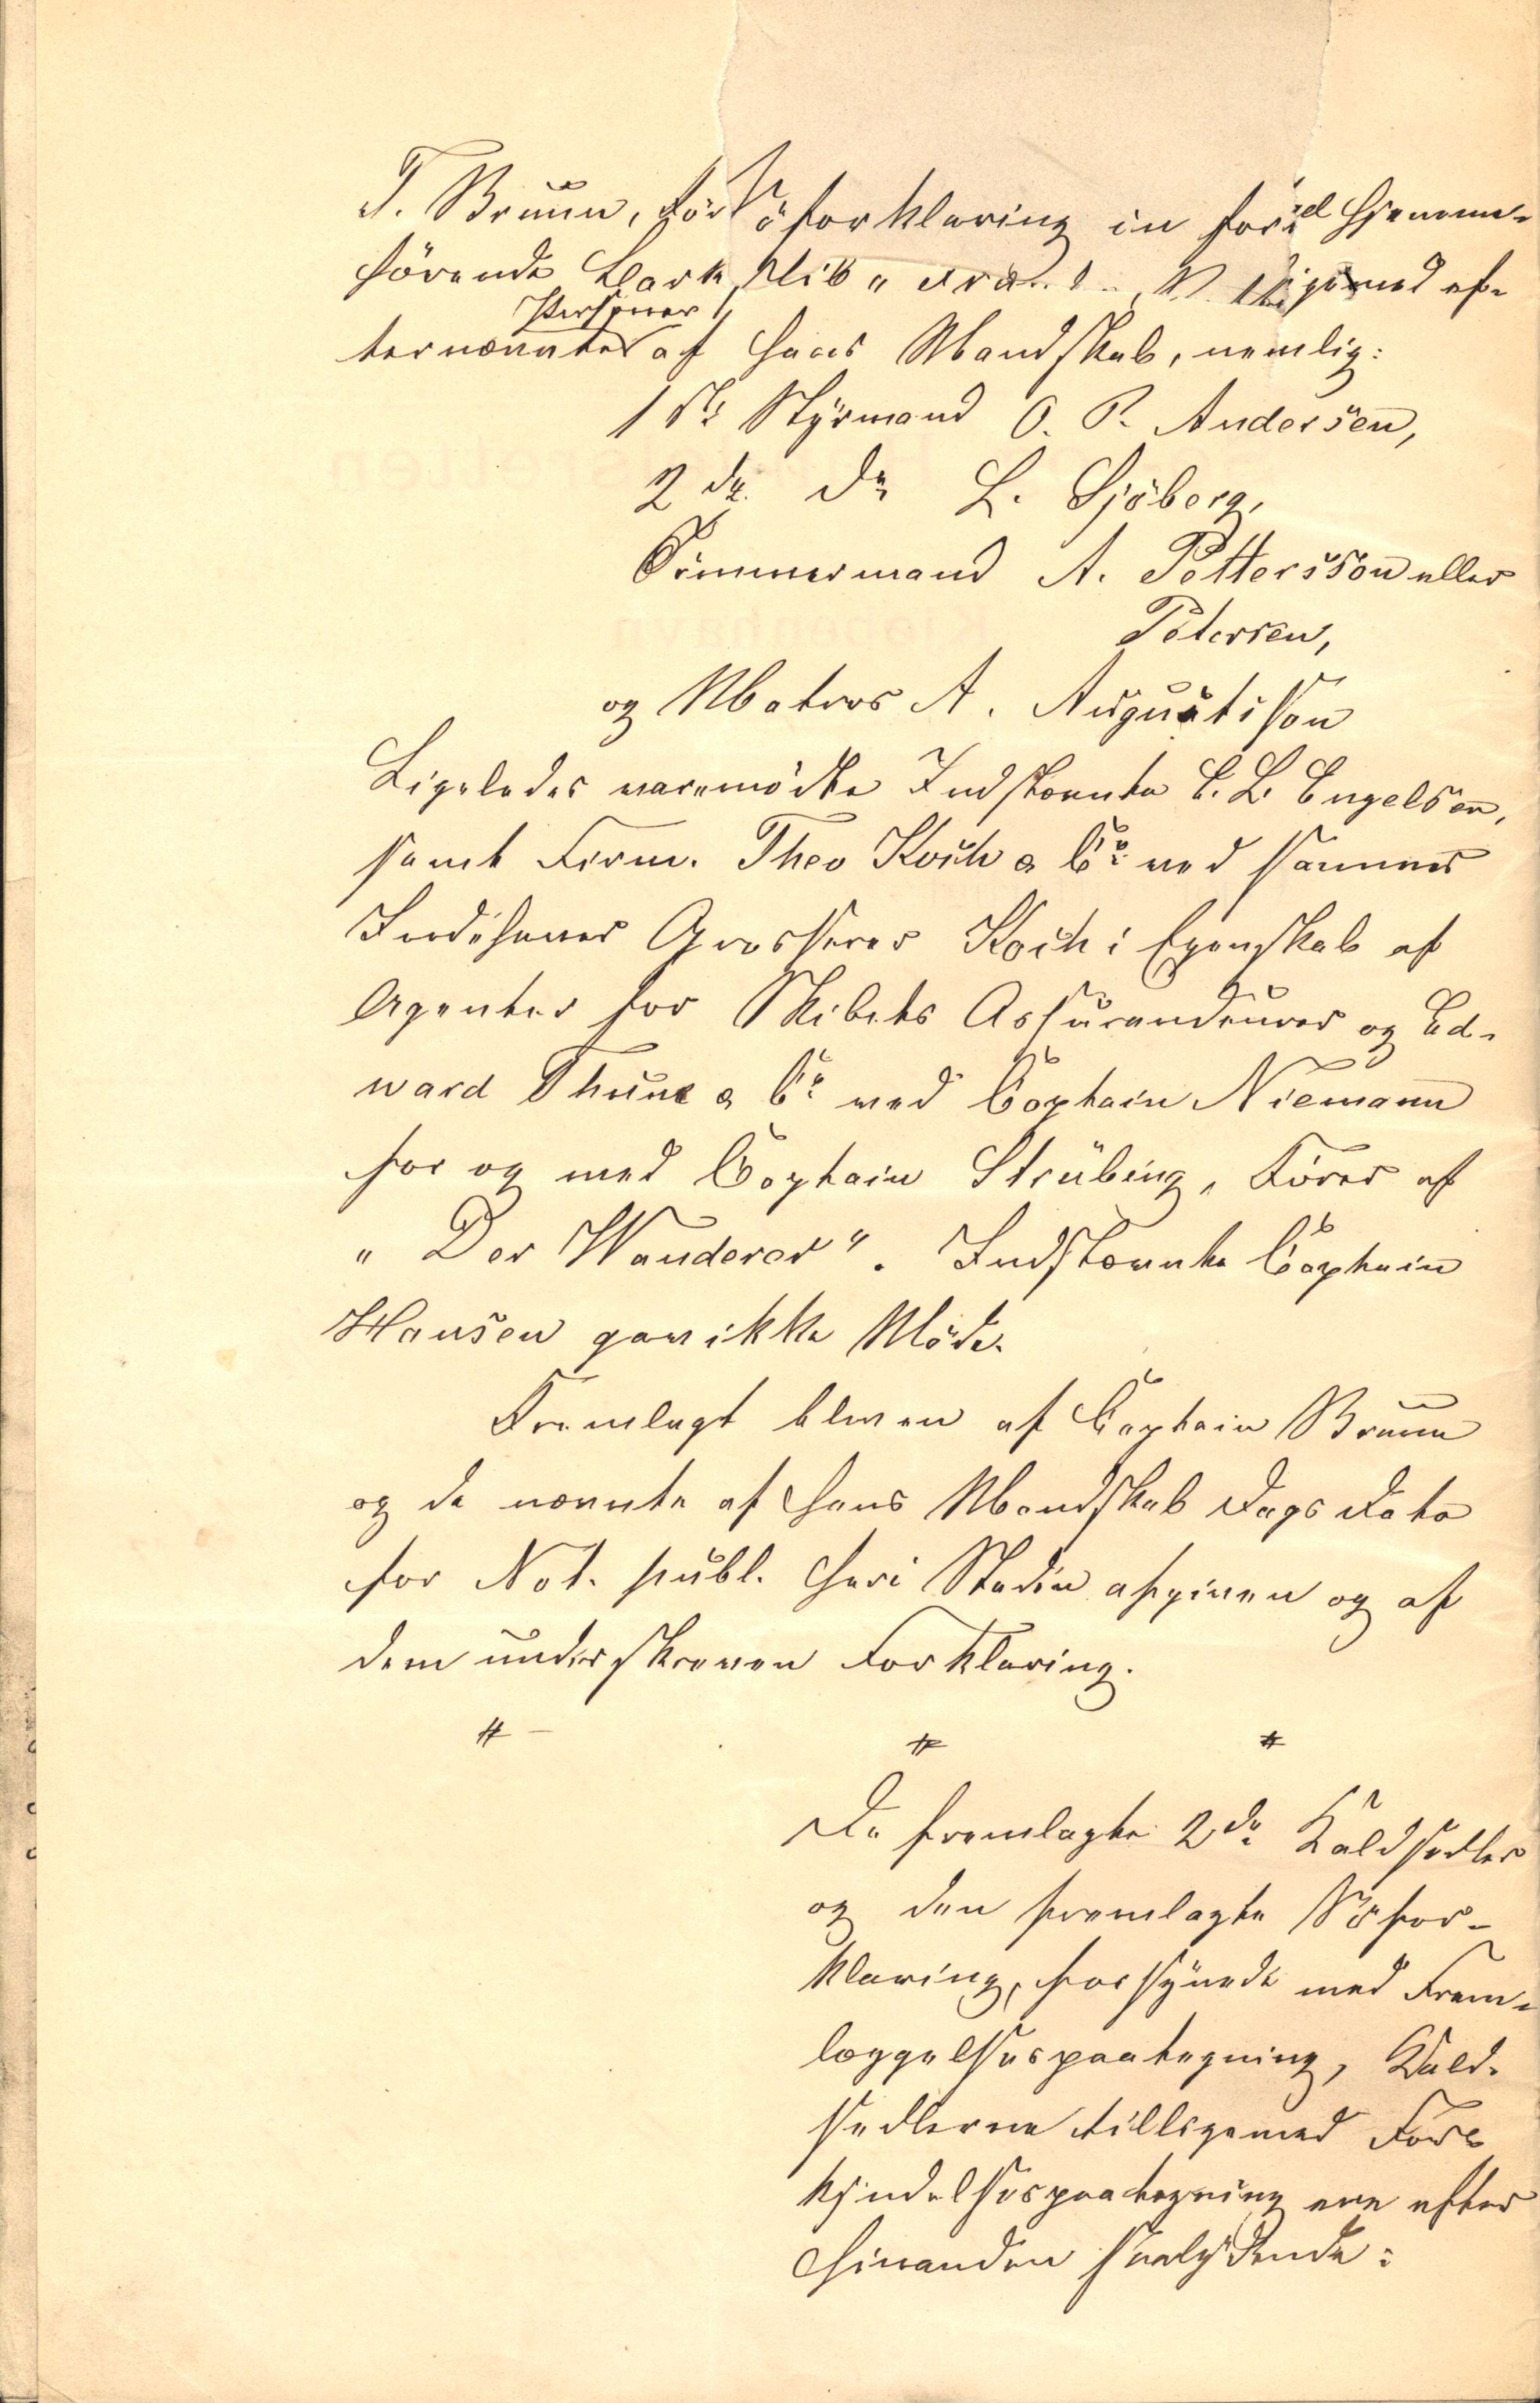 T. Bruun, för Söforklaring in fori hjemme-
hörende Barkskib "
Personer
ternævnte af hans Mandskab, nemlig:
1ste Styrmand O. P. Andersen,
2de do L. Sjöberg,
Tömmermand A. Pettersson eller
Petersen,
og Matros A. Augustisson
Ligeledes vare mödte Indstævnte C. L. Engelsen,
samt Firm. Theo Koch & Co ved sammes
Indehaver Grosserer Koch i Egenskab af
Agenter for Skibets Assurandeurer og Ed-
ward Thune & Co ved Captain Niemann
for og med Captain Strübing, Förer af
"Der Wanderer". Indstævnte Captain
Hansen gav ikke Möde.
Fremlagt bleven af Captain Bruun
og de nævnte af hans Mandskab Dags Dato
for Not. publ. her i Staden afgiven og af
dem underskreven Forklaring.
# - # #
De fremlagte 2de Kaldsedler
og den fremlagte Söfor-
klaring, forsynede med Frem-
læggelsespaategning, Kald-
sedlerne tilligemed For-
kyndelsespaategning ere efter
hinanden saalydende: